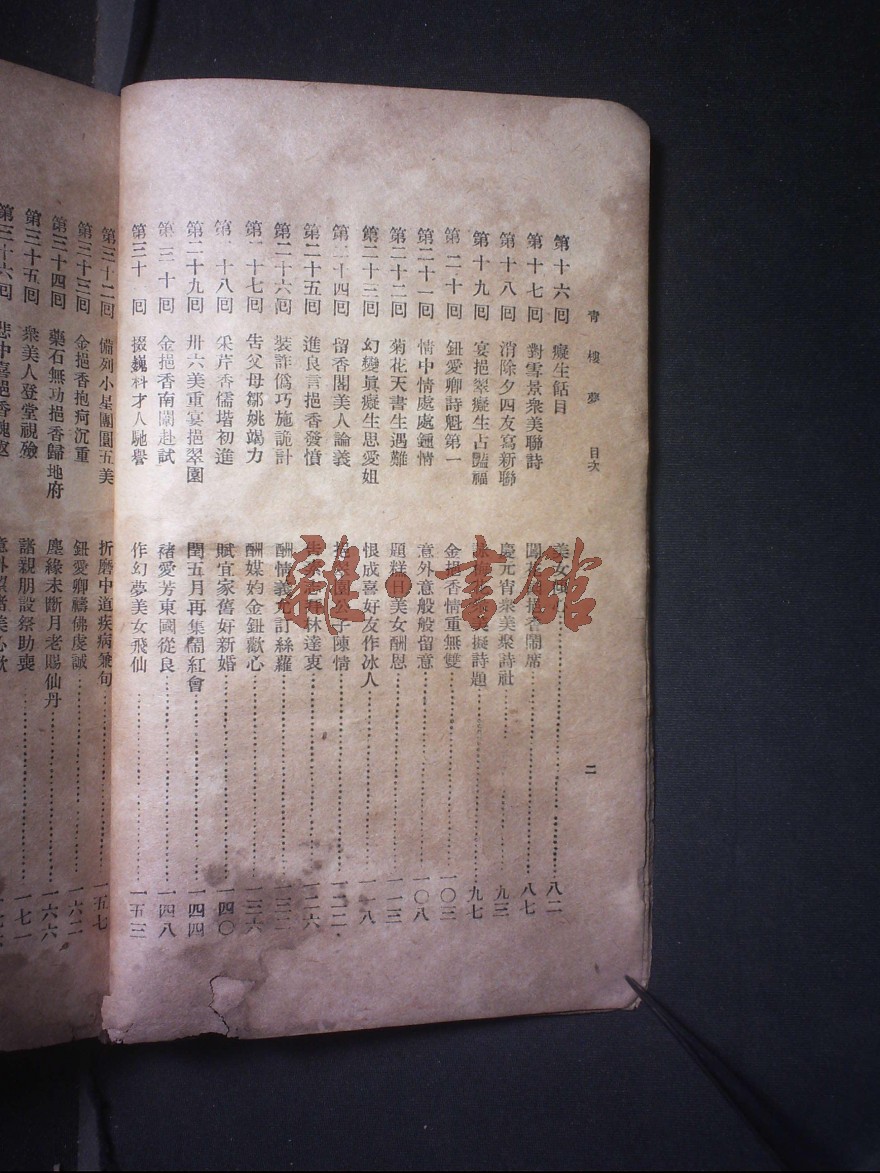 青樓夢 目次 二
第十六回 癡生餂目 美女 八二
第十七回 對雪景衆美聯詩 鬧席 八七
第十八回 消除夕四友寫新聯 慶元宵衆美聚詩社 九三
第十九回 宴挹翠癡生占豔福 擬詩題 九七
第二十回 鈕愛卿詩魁第一 金挹香情重無雙 一〇三
第二十一回 情中情處處鍾情 意外意般般留意 一〇八
第二十二回 菊花天書生遇難 題糕日美女酬恩 一一三
第二十三回 幻變眞癡生思愛姐 恨成喜好友作冰人 一一八
第二十四回 留香閣美人論義 公子陳情 一二二
第二十五回 進良言挹香發憤 林達衷 一二六
第二十六回 裝詐僞巧施詭計 酬情義允訂絲蘿 一三二
第二十七回 告父母鄒姚竭力 酬媒妁金鈕歡心 一三六
第二十八回 采芹香儒堦初進 賦宜家舊好新婚 一四〇
第二十九回 卅六美重宴挹翠園 閏五月再集鬧紅會 一四四
第三十回 金挹香南闈赴試 褚愛芳東國從良 一四八
第三十 回 掇巍科才人馳譽 作幻夢美女飛仙 一五三
第三十二回 備列小星團圓五美 折磨中道疾病兼旬 一五七
第三十三回 金挹香抱疴沉重 鈕愛卿禱佛虔誠 一六二
第三十四回 藥石無功挹香歸地府 塵緣未斷月老賜仙丹 一六六
第三十五回 衆美人登堂視殮 諸親朋設祭助喪 一七一
第三十六回 悲中喜挹香魂返
雜·書館